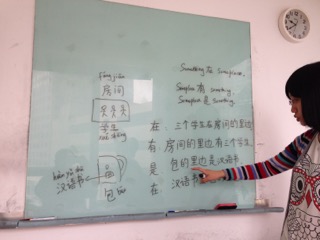 fáng jiān
房间
学生
Something 在 Someplace.
Someplace 有 something
Someplace 是 something.
在 三个学生在房间的里边
有 房间的里边有三个学生
是 包的里边是汉语书.
在 汉语书
汉语书
包 bāo